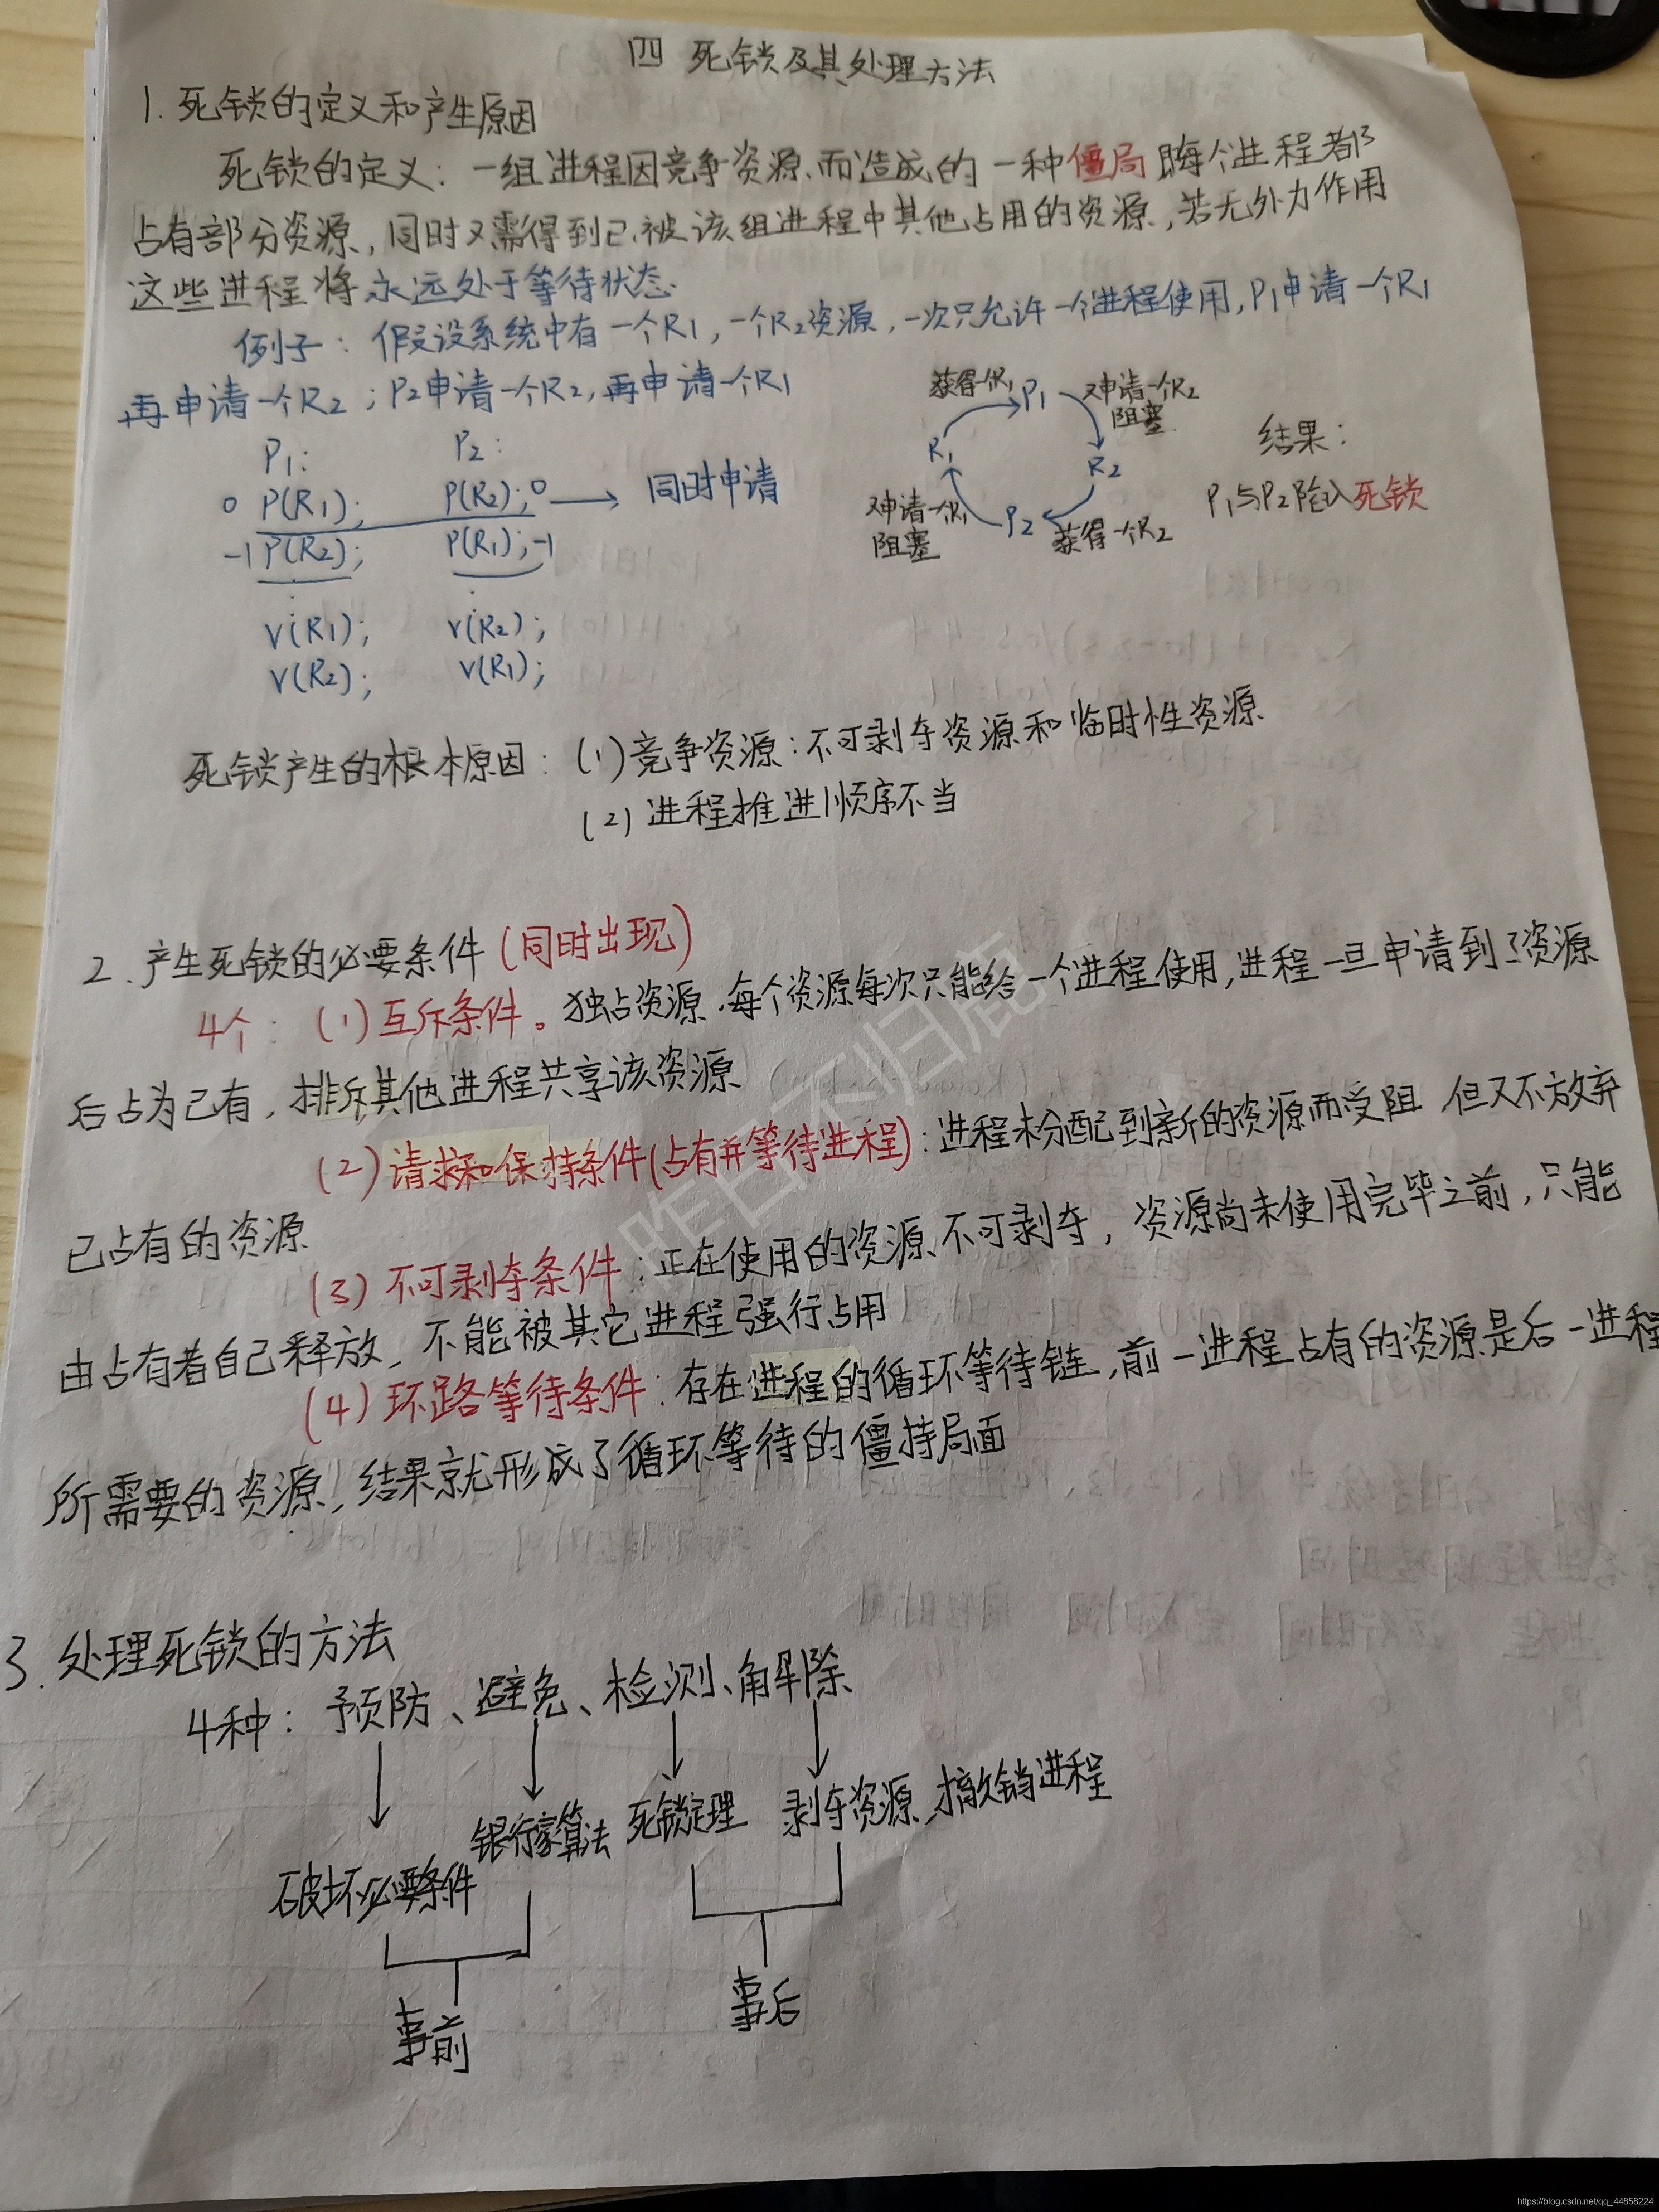 四 死锁及其处理方法
1. 死锁的定义和产生原因
死锁的定义：一组进程因竞争资源而造成的一种僵局 即每个进程都
占有部分资源，同时又需得到已被该组进程中其他占用的资源，若无外力作用
这些进程将永远处于等待状态.
例子：假设系统中有一个R1，一个R2资源，一次只允许一个进程使用，P1申请一个R1
再申请一个R2；P2申请一个R2，再申请一个R1
P1： P2：
0 P(R1); P(R2); 0 → 同时申请
-1 P(R2); P(R1); -1
V(R1); V(R2);
V(R2); V(R1);
获得一个R1 P1 又申请一个R2
阻塞
R1 R2
又申请一个R1 P2 获得一个R2
阻塞
结果：
P1与P2陷入死锁
死锁产生的根本原因：(1) 竞争资源：不可剥夺资源和临时性资源
(2) 进程推进顺序不当
2. 产生死锁的必要条件 (同时出现)
4个：(1) 互斥条件。独占资源，每个资源每次只能给一个进程使用，进程一旦申请到了资源
后占为己有，排斥其他进程共享该资源
(2) 请求和保持条件(占有并等待进程)：进程未分配到新的资源而受阻 但又不放弃
已占有的资源
(3) 不可剥夺条件：正在使用的资源不可剥夺，资源尚未使用完毕之前，只能
由占有者自己释放，不能被其它进程强行占用
(4) 环路等待条件：存在进程的循环等待链，前一进程占有的资源是后一进程
所需要的资源，结果就形成了循环等待的僵持局面
3. 处理死锁的方法
4种：预防、避免、检测、解除
破坏必要条件 银行家算法 死锁定理 剥夺资源、撤销进程
事前 事后
昨日不归鹿
https://blog.csdn.net/qq_44858224